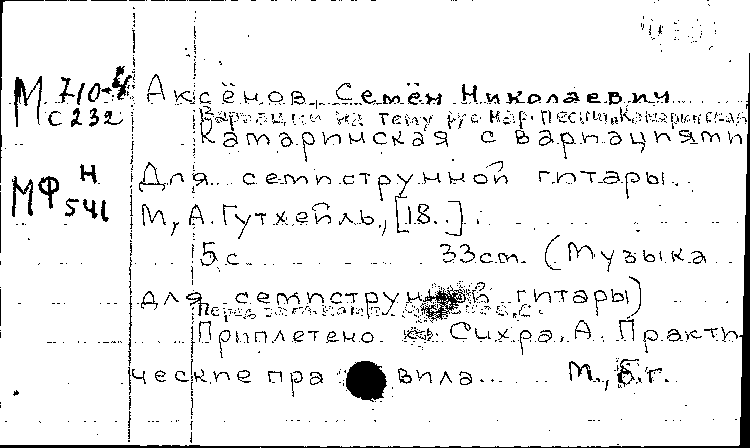 М 710-4
с 232
Аксёнов, Семён Николаевич
Вариации на тему рус. нар. песни "Камаринская
Камаринская с варпацпямп
МФ Н
541
Для семпструнной гптары.
М, А. Гутхейль, [18..].
5 с. 33 cm. (Музыка
для семпструнной гптары)
Перед загл.
Приплетено к: Сихра, А. Практи-
ческпе пра вила... М., б.г.